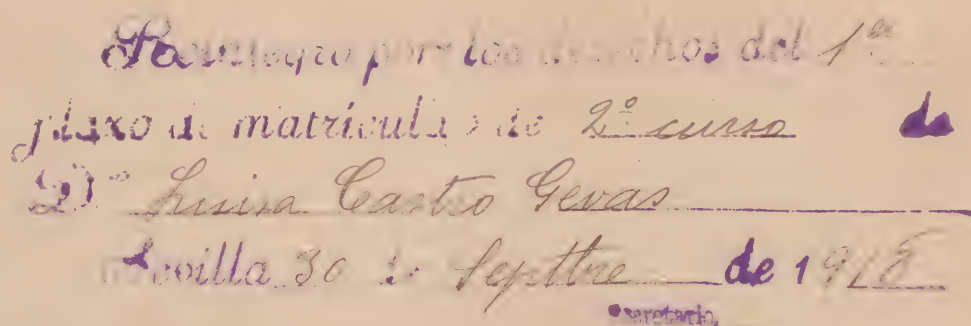 Reintegro por los derechos del 1er
plazo de matrícula de 2º curso de
Dª Luisa Castro Gevas
Sevilla 30 de Septtbre de 1918
Secretario,